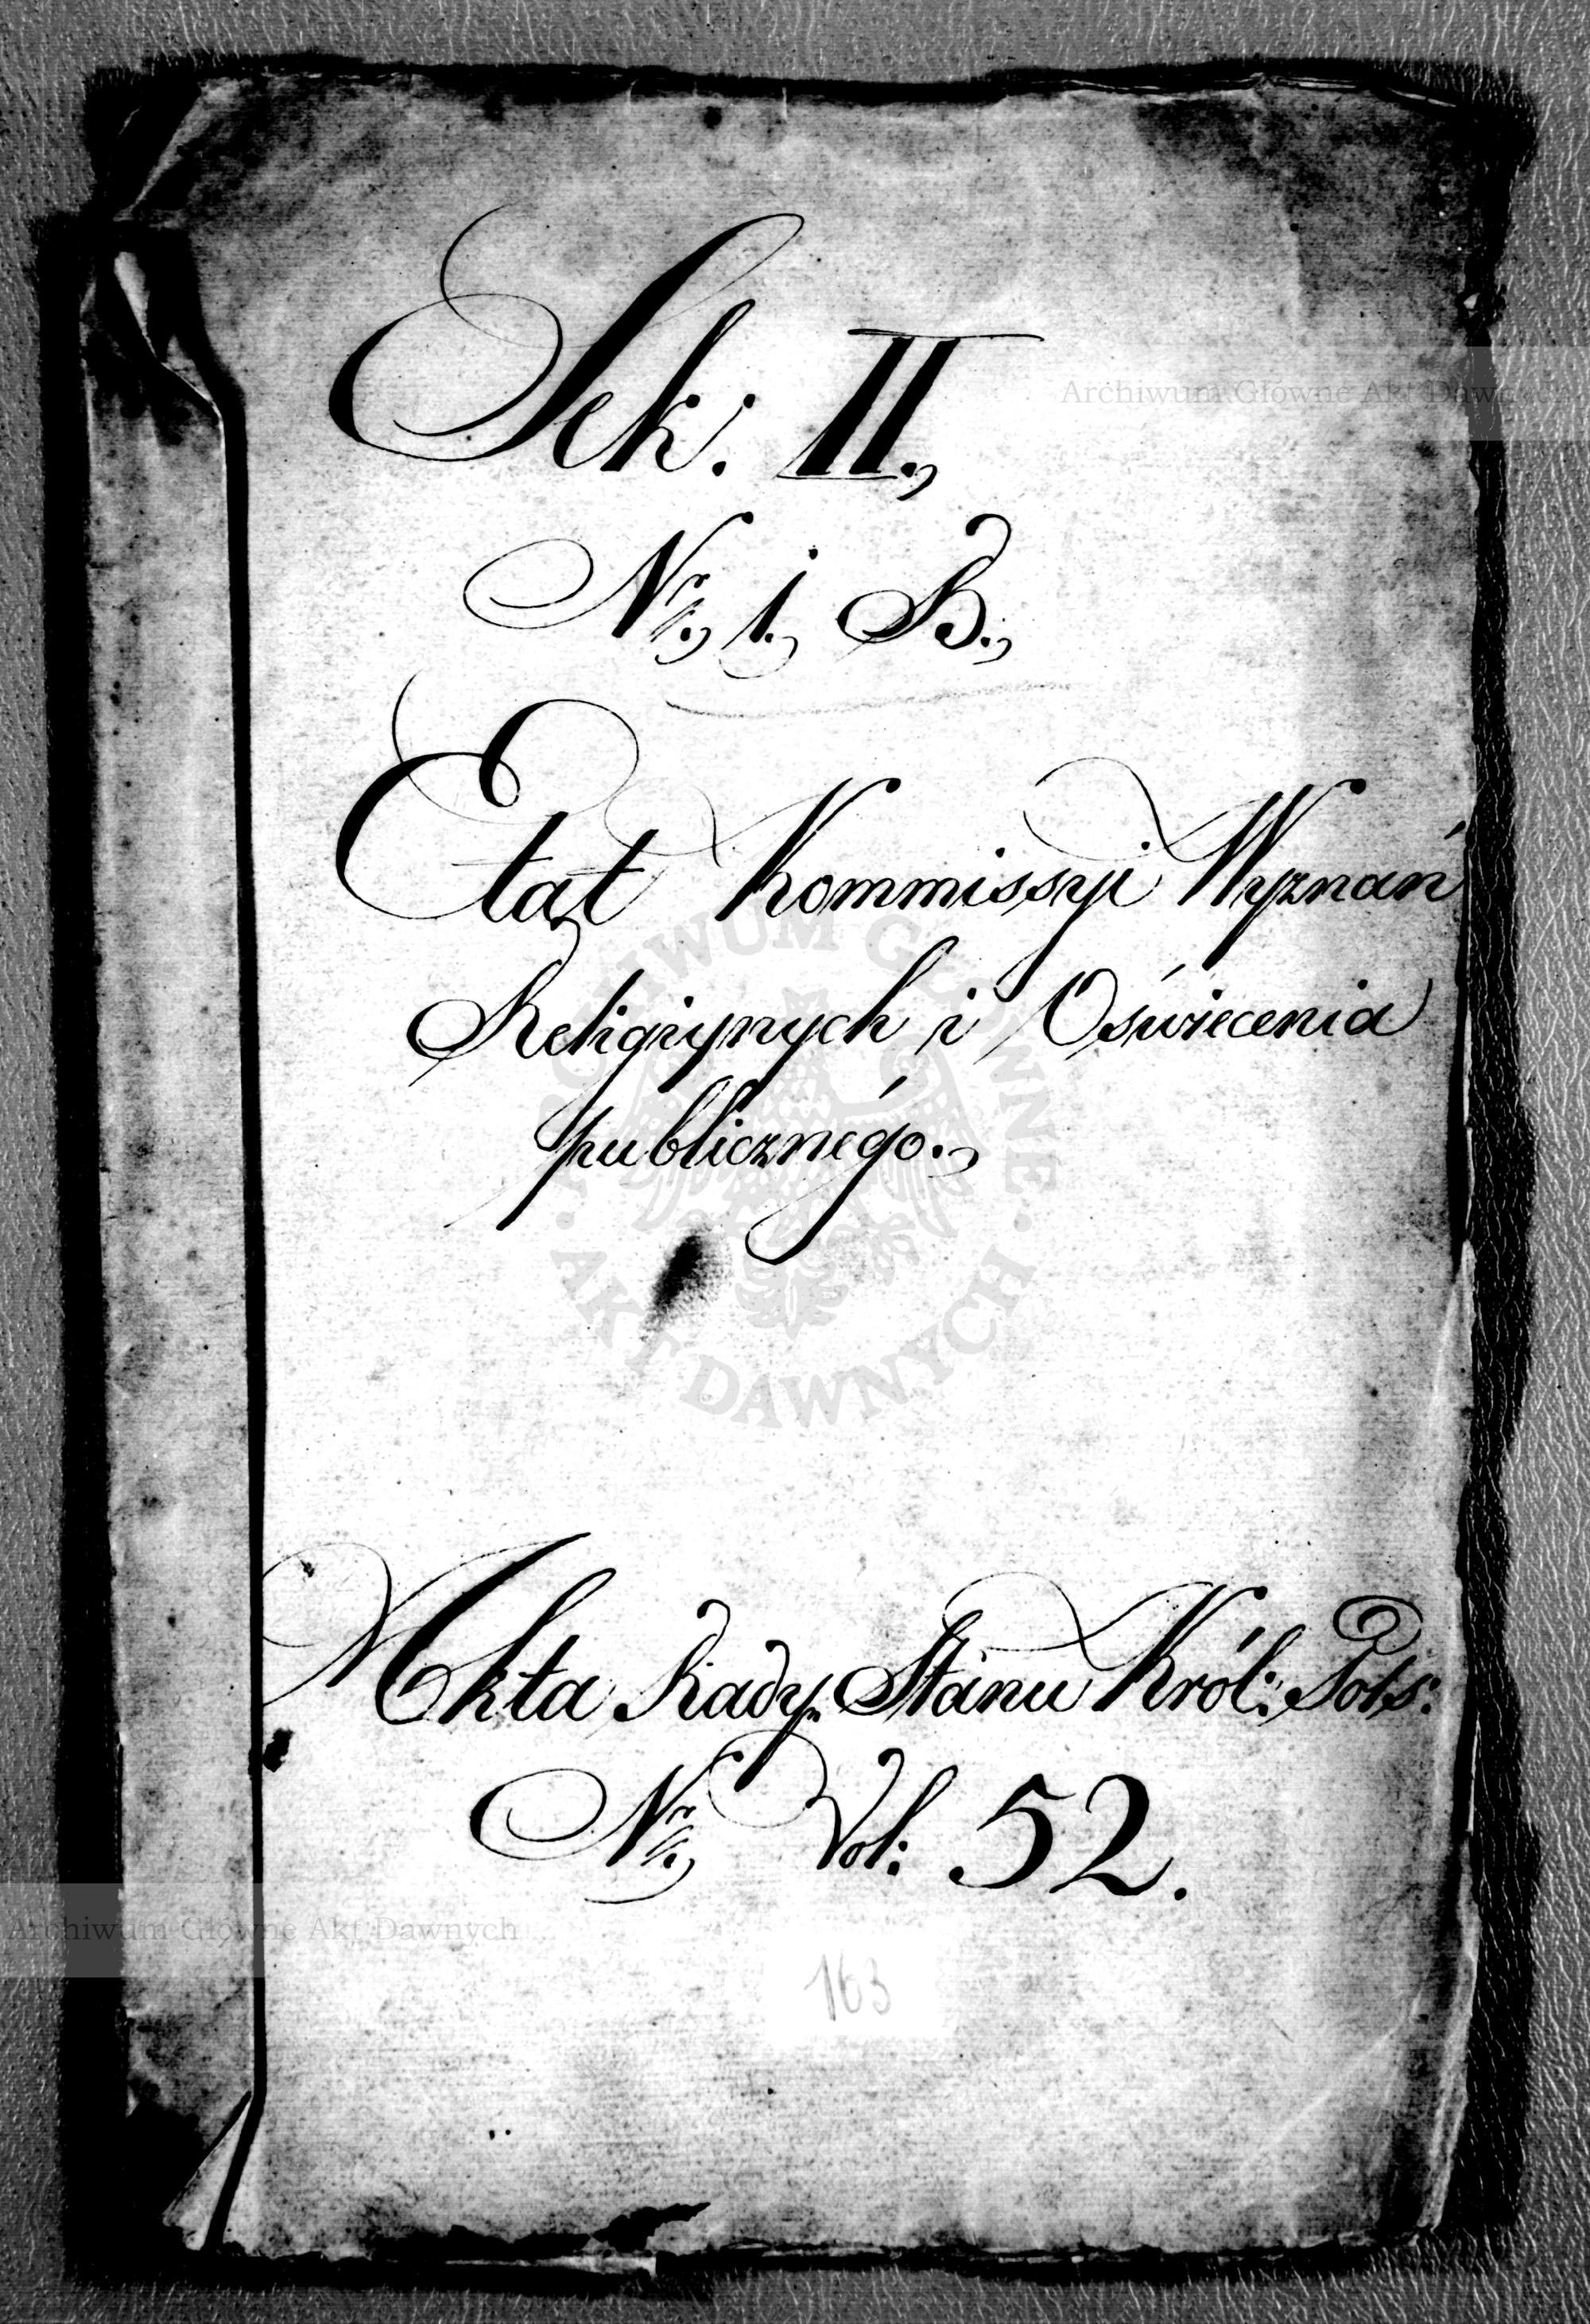 Sek: II.,
Nr., 1., B.,
Etat Kommissyi Wyznań
Religiynych i Oświecenia
publicznégo.,
Akta Rady Stanu Król: Pols:
Nr., Vol: 52.
163
Archiwum Główne Akt Dawnych
ARCHIWUM GŁÓWNE
AKT DAWNYCH
Archiwum Główne Akt Dawnych